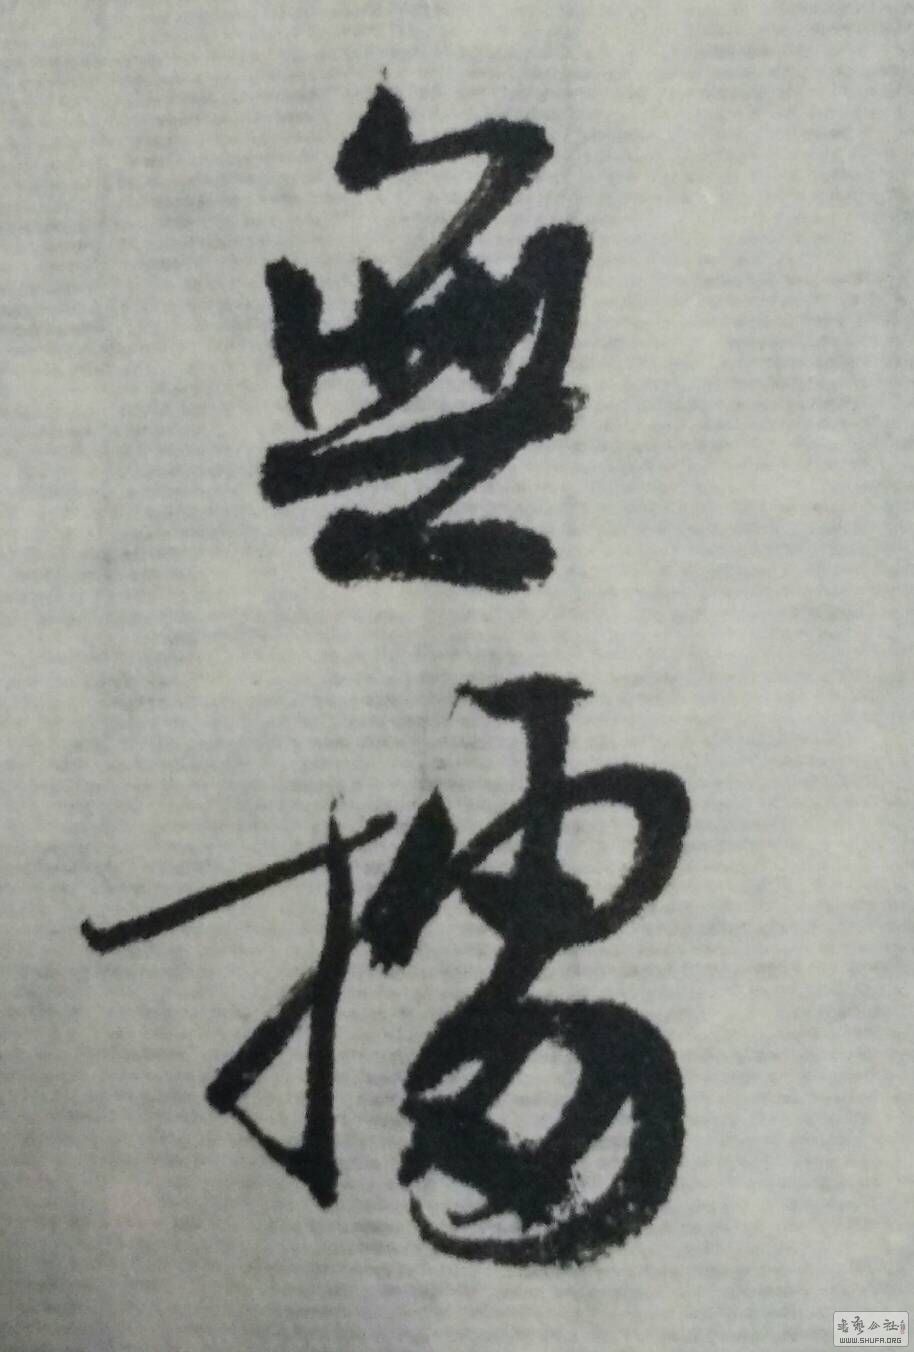 無擂
书艺公社
WWW.SHUFA.ORG